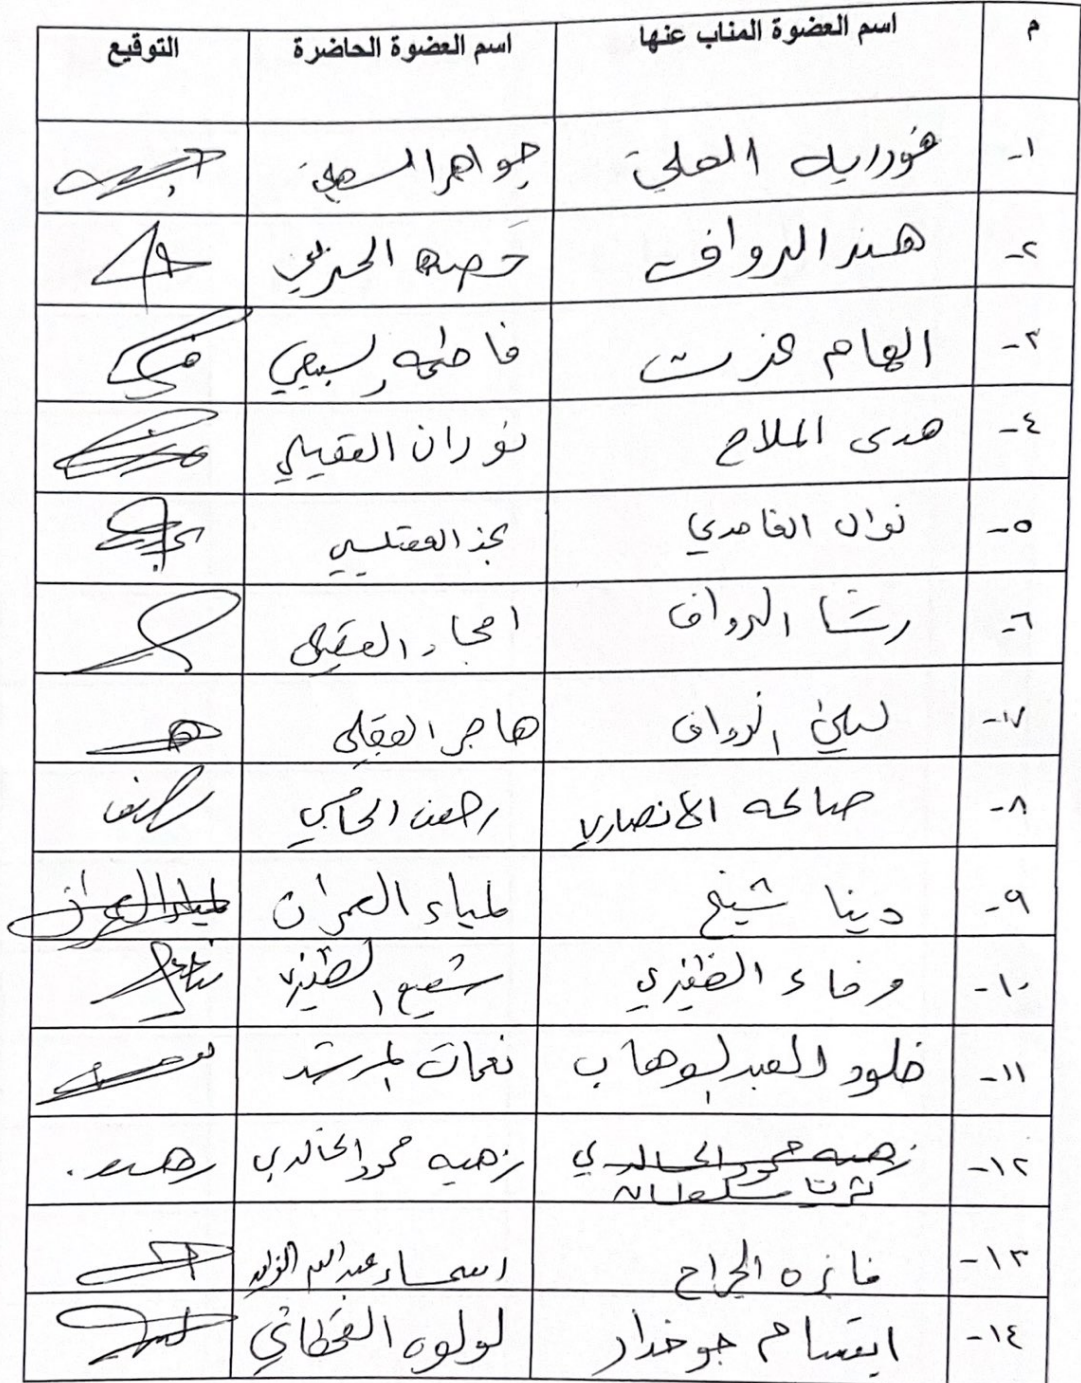 م اسم العضوة المناب عنها اسم العضوة الحاضرة التوقيع
١- العلي جواهر السهلي
٢- هند الرواف حصه الحربي
٣- الهام عزت فاطمه السبيعي
٤- هدى الملاح نوران العقيلي
٥- نوال الغامدي
٦- رشا الرواف امجاد العقيلي
٧- ليلى الرواف هاجر العقيلي
٨- صالحه الانصاري
٩- دينا شيخ لمياء العمران لمياء العمران
١٠- وفاء الظفيري الظفيري
١١- خلود العبدالوهاب نعمات المرشد
١٢- زهيه حمود الخالدي زهيه حمود الخالدي

١٣- فايزه الجراح اسماء عبدالله
١٤- ابتسام جوخدار لولوه القحطاني